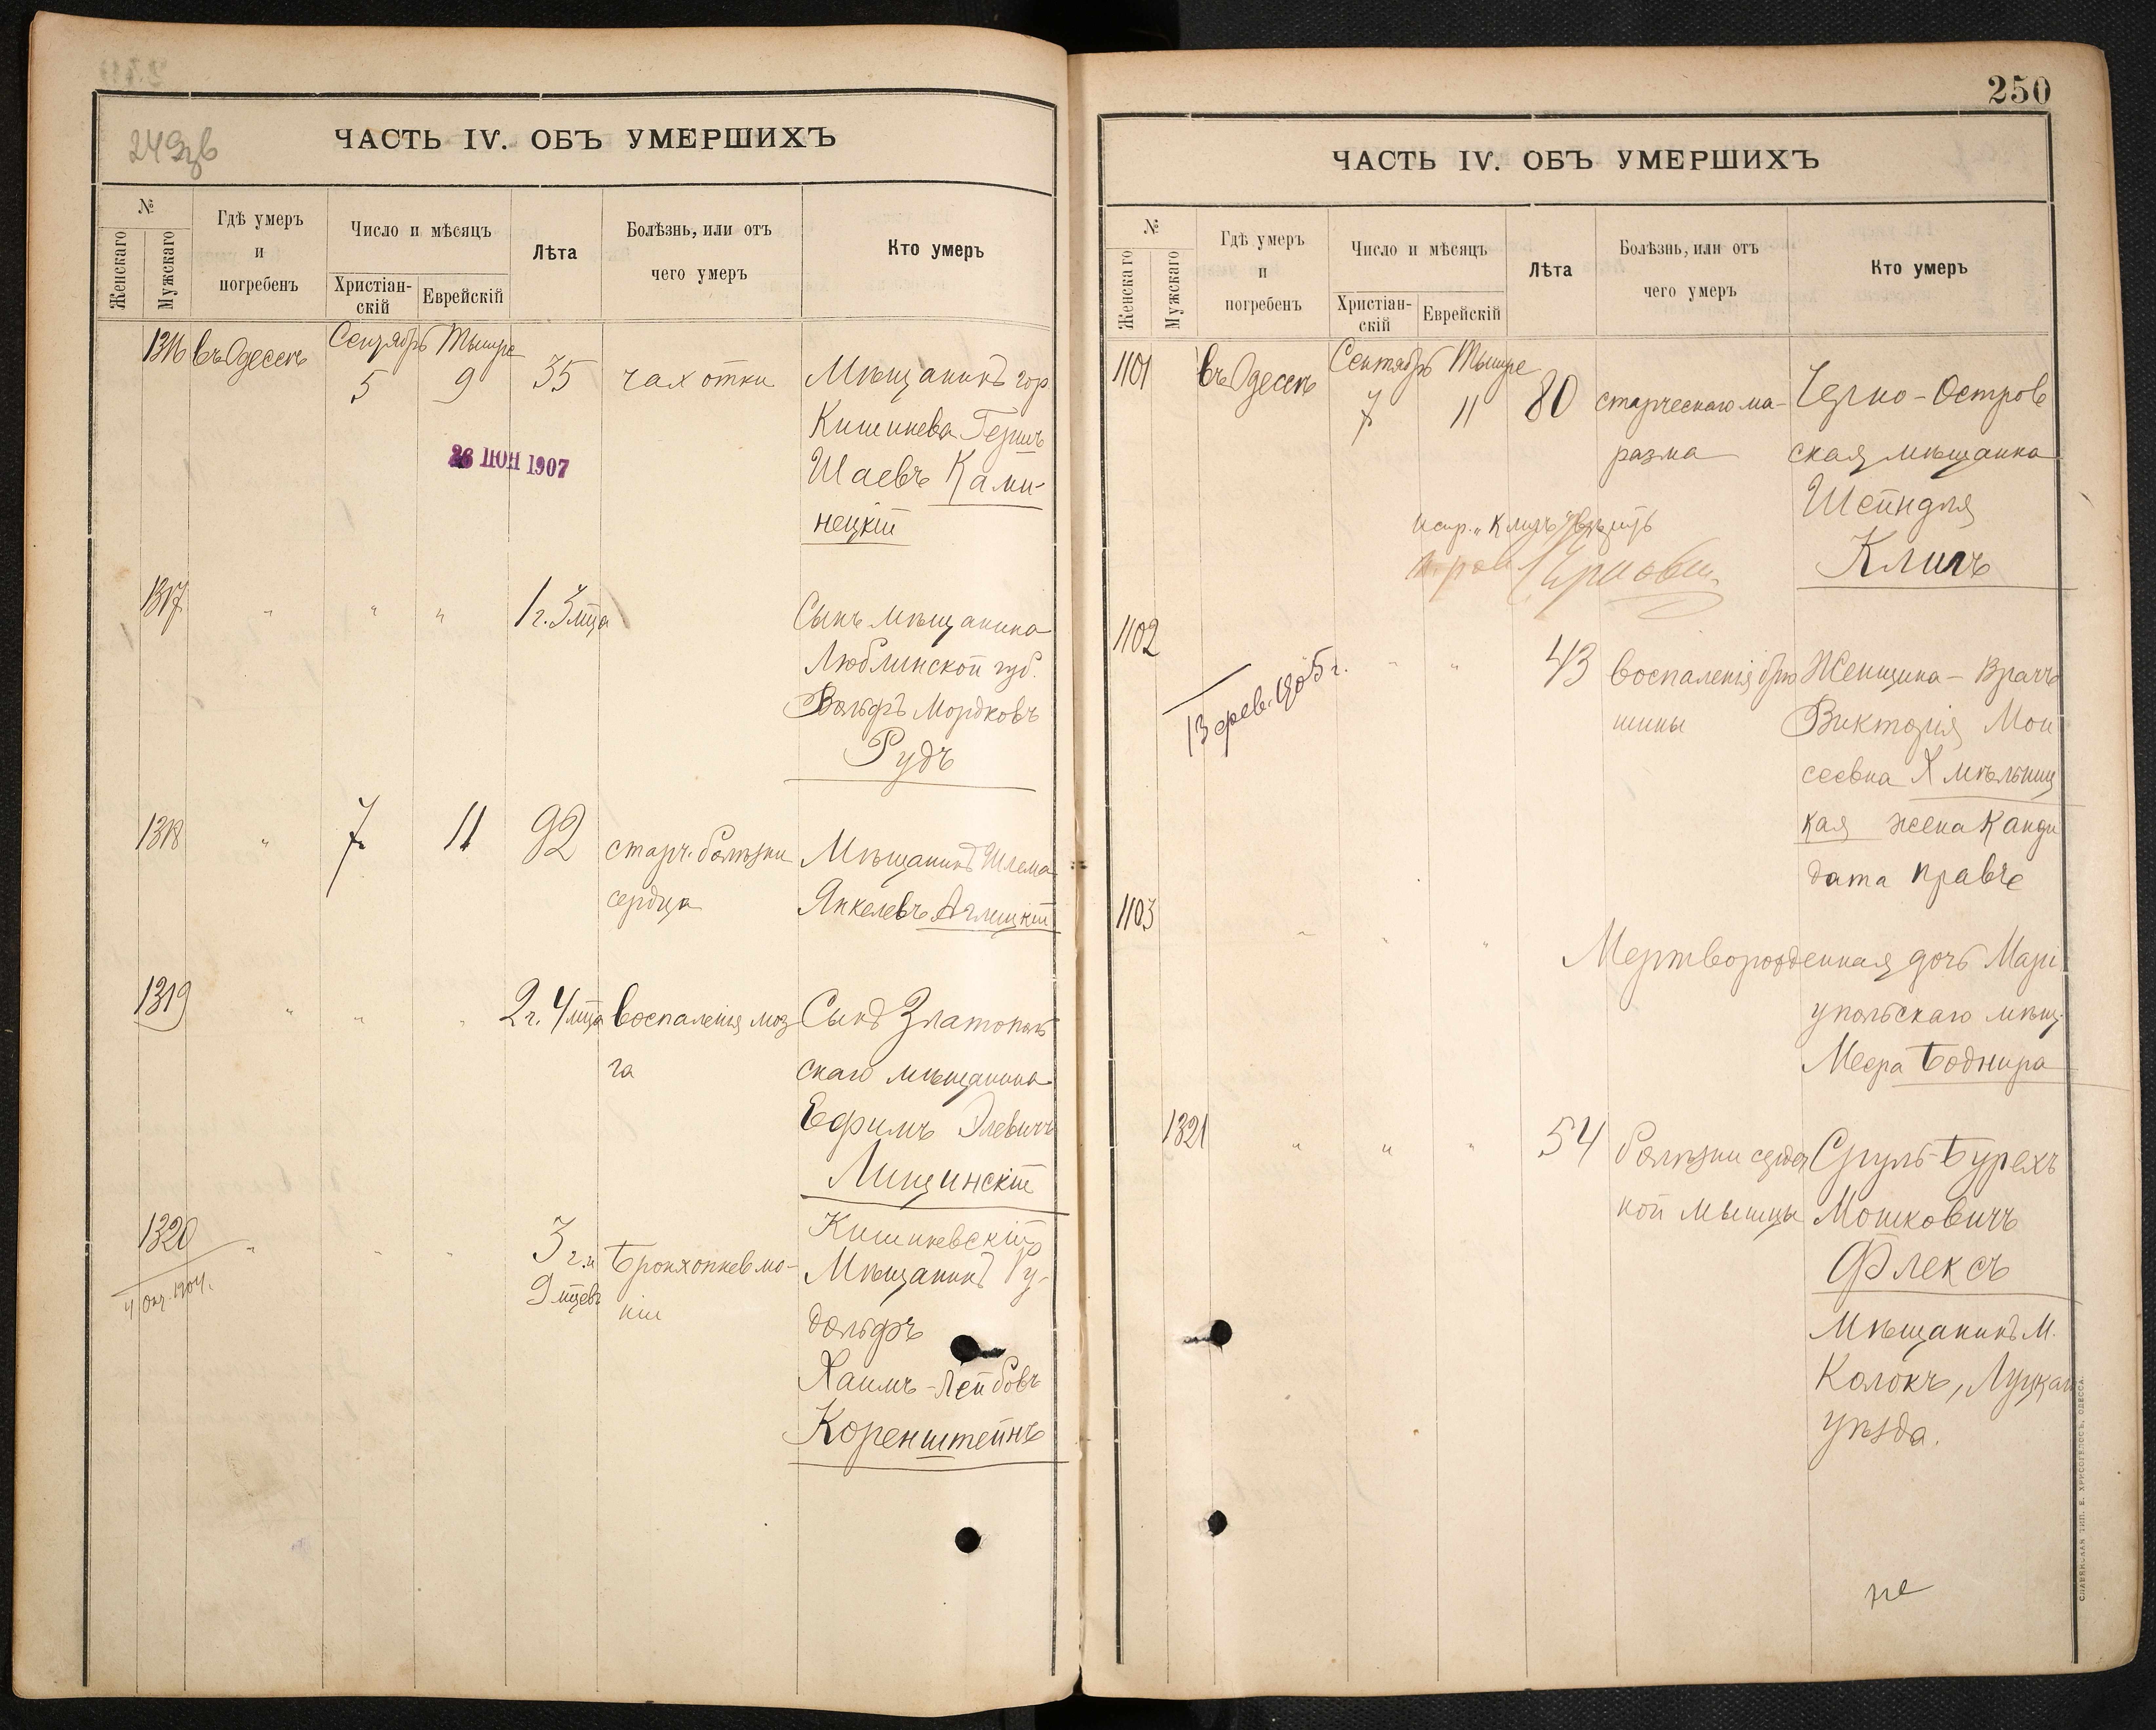 ЧАСТЬ IV. ОБЪ УМЕРШИХЪ
№
Женскаго
Мужскаго
Гдѣ умеръ
и
погребенъ
Число и мѣсяцъ
Христіан-
скій
Еврейскій
Лѣта
Болѣзнь, или отъ
чего умеръ
Кто умеръ
1316 въ Одессѣ
Сентябрь Тышре
5 9 35 чахотки
Мѣщанинъ гор
Кишинева Гершъ
Шаевъ Ками-
нецкій
26 ІЮН 1907
1317 " " " 1 г. 3 мца
Сынъ мѣщанина
Люблинской губ.
Вольфъ Мордковъ
Рудъ
1318 " 7 11 92 старч. болѣзни
сердца
Мѣщанинъ Шлема
Янкелевъ
1319 " " " 2 г. 4 мца воспаленія моз
га
Сынъ Златополь
скаго мѣщанина
Ефимъ Элевичъ
Лищинскій
1320 " " " 3 г. и
9 мцевъ
Бронхопневмо-
ніи
4 Окт. 1904.
Кишиневскій
Мѣщанинъ Ру-
дольфъ
Хаимъ-Лейбовъ
Коренштейнъ
250
ЧАСТЬ IV. ОБЪ УМЕРШИХЪ
№
Женскаго
Мужскаго
Гдѣ умеръ
и
погребенъ
Число и мѣсяцъ
Христіан-
скій
Еврейскій
Лѣта
Болѣзнь, или отъ
чего умеръ
Кто умеръ
1101 въ Одессѣ
Сентябрь Тышре
7 11 80 старческаго ма-
разма
Черно-Остров
ская мѣщанка
Шейндля
Клигъ
1102 " " 43 воспаленія брю
шины
13 фев. 1905 г.
Женщина-Врачъ
Викторія Мои
сеевна Хмѣльниц
кая жена Канди
дата правъ
1103 " " "
Мертворожденная дочь Марі
упольскаго мѣщ.
Меера Боднира
1321 " " " 54 болѣзни сердеч
ной мышцы
Сруль-Бурехъ
Мошковичъ
Флексъ
Мѣщанинъ М.
Колокъ, Луцкаго
уѣзда.
СЛАВЯНСКАЯ ТИП. Е. ХРИСОГЕЛОСЪ, ОДЕССА.